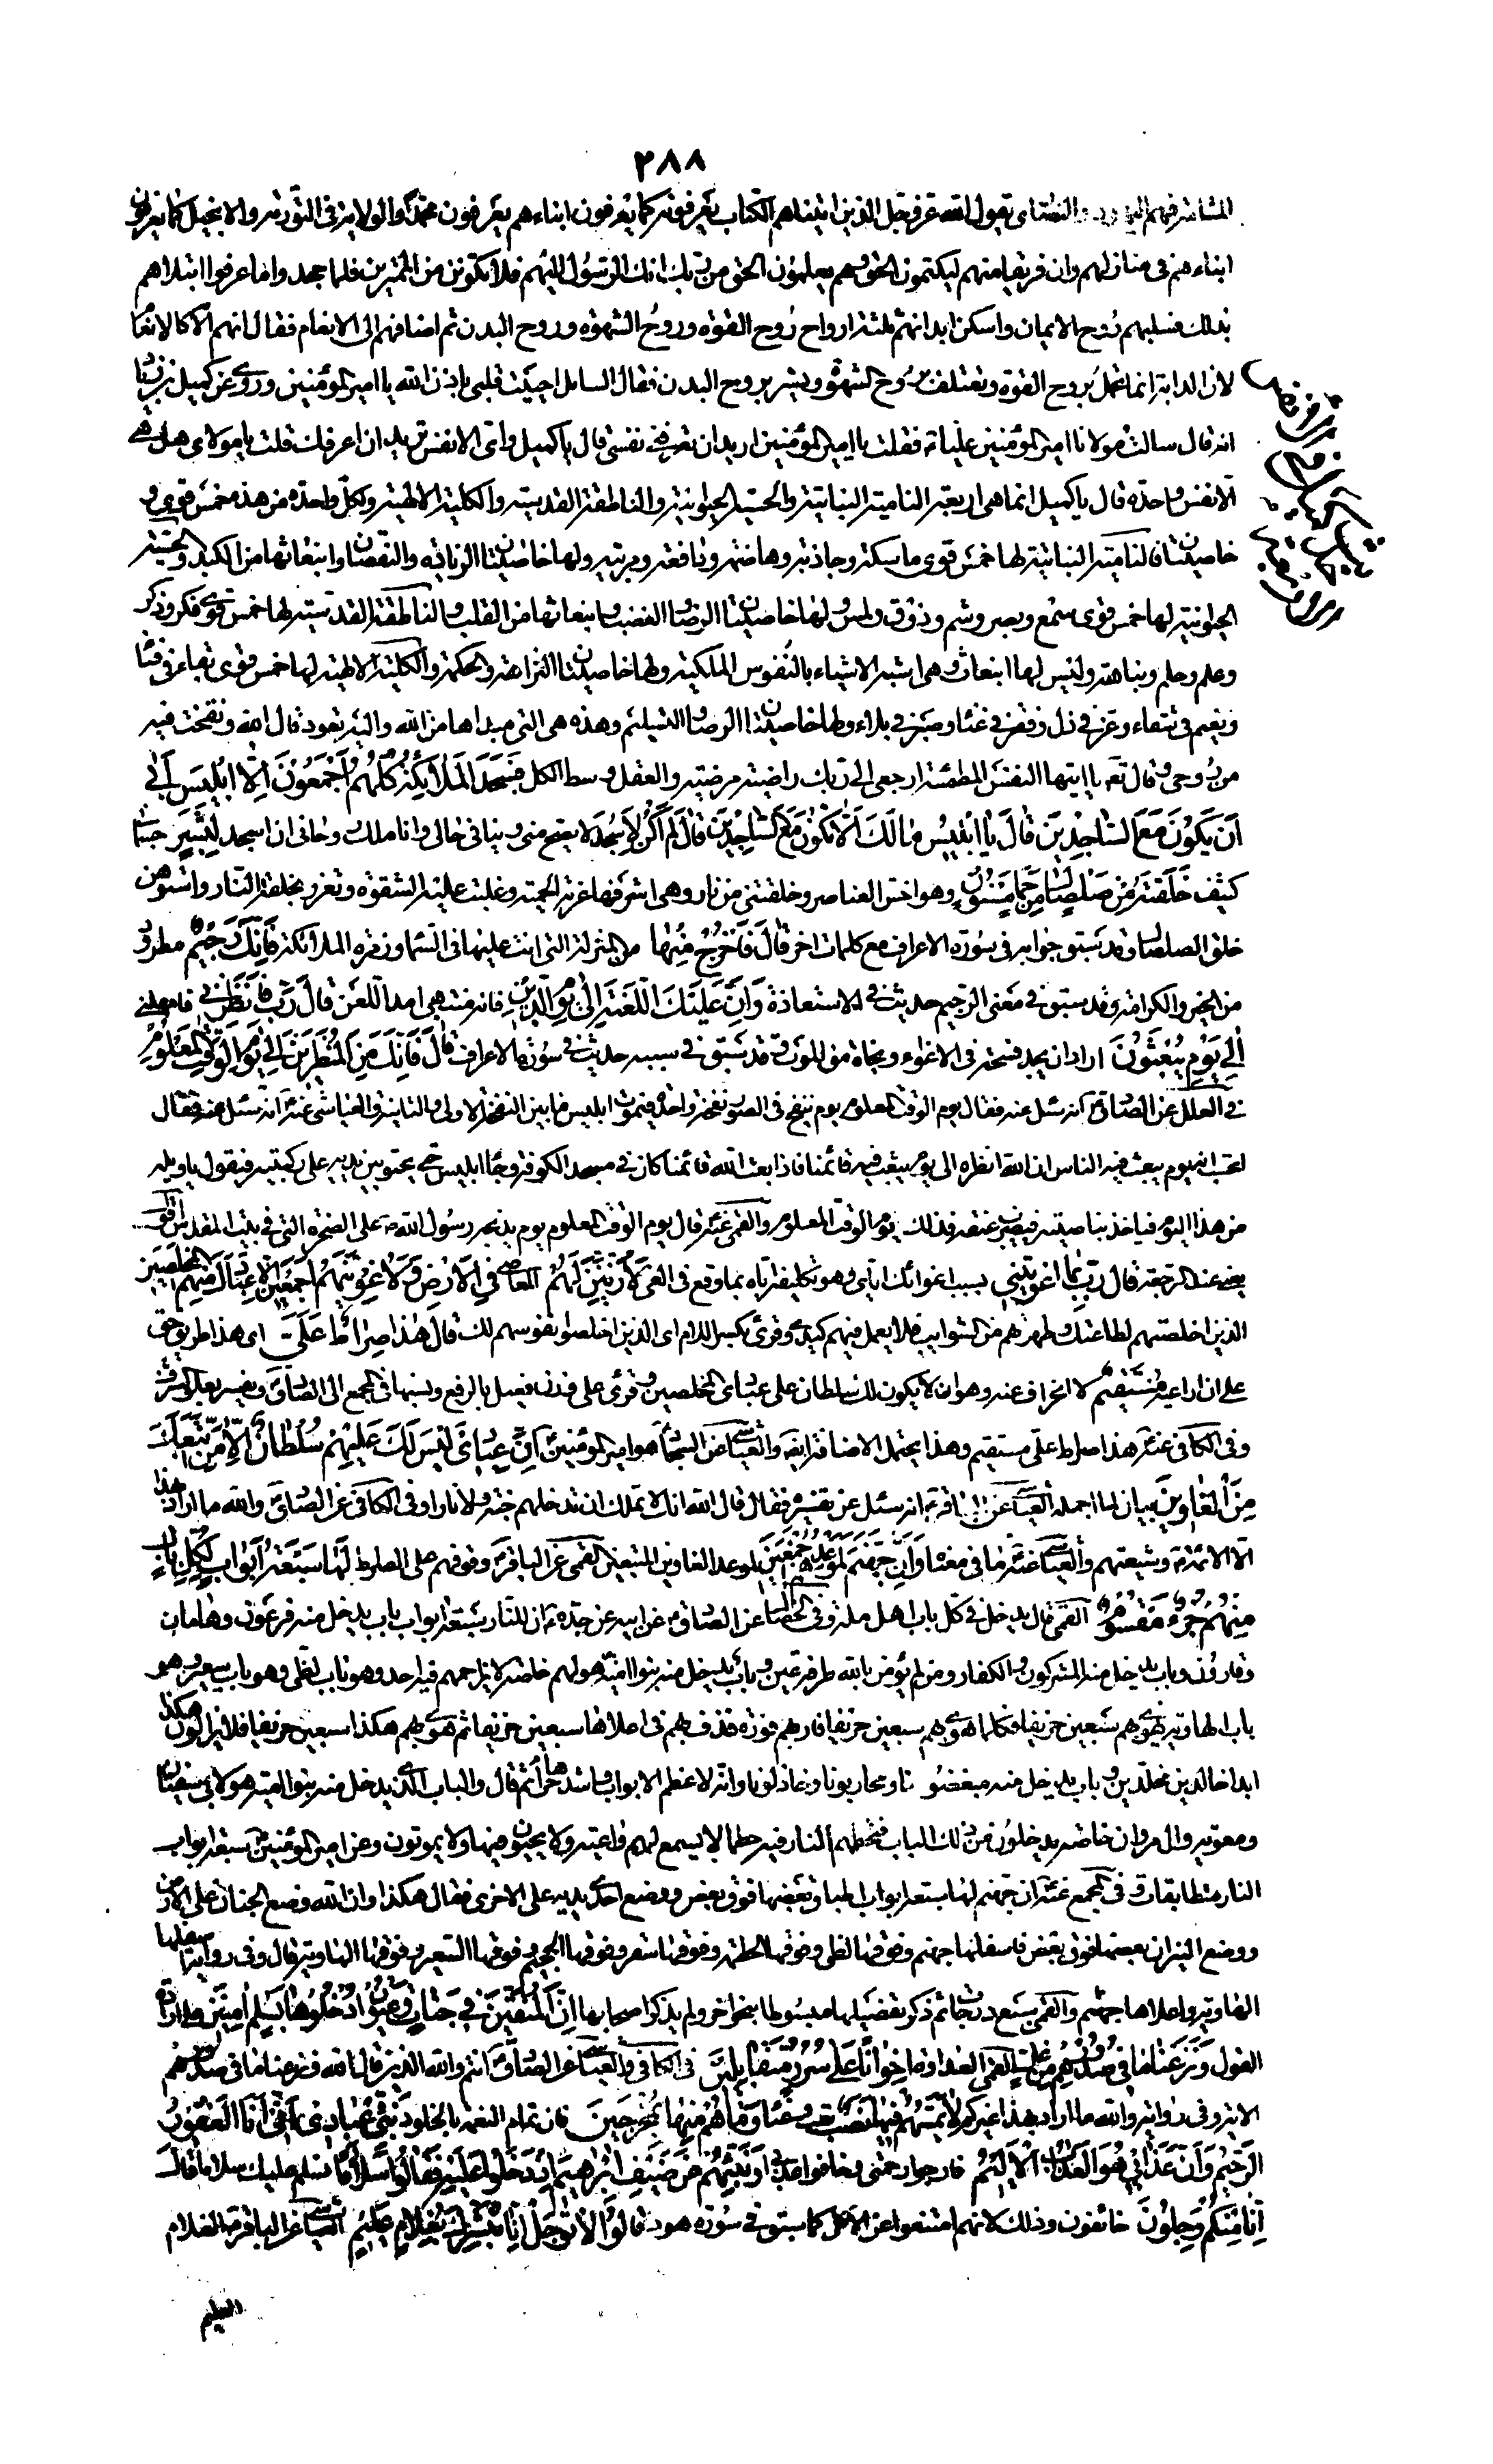 ٢٨٨
المشامة فهم اليهود والنصارى يقول الله عز وجل الذين اتيناهم الكتاب يعرفونه كما يعرفون ابناءهم يعرفون محمدا والولاية في التورية والانجيل كما يعرفون
ابناءهم في منازلهم وان فريقا منهم ليكتمون الحق وهم يعلمون الحق من ربك انك الرسول اليهم فلا تكونن من الممترين فلما جحدوا ما عرفوا ابتلاهم
بذلك فسلبهم روح الايمان واسكن ابدانهم ثلثة ارواح روح القوة وروح الشهوة وروح البدن ثم اضافهم الى الانعام فقال ان هم الا كالانعام
لان الدابة انما تحمل بروح القوة وتعتلف بروح الشهوة وتسير بروح البدن فقال السائل احييت قلبي باذن الله يا امير المؤمنين وروى عن كميل بن زياد
انه قال سالت مولانا امير المؤمنين عليا فقلت يا امير المؤمنين اريد ان تعرفني نفسي قال يا كميل واي الانفس تريد ان اعرفك قلت يا مولاي هل هي
الا نفس واحدة قال يا كميل انما هي اربعة النامية النباتية والحسية الحيوانية والناطقة القدسية والكلية الالهية ولكل واحدة من هذه خمس قوى و
خاصيتان فالنامية النباتية لها خمس قوى ماسكة وجاذبة وهاضمة ودافعة ومربية ولها خاصيتان الزيادة والنقصان وانبعاثها من الكبد والحسية
الحيوانية لها خمس قوى سمع وبصر وشم وذوق ولمس ولها خاصيتان الرضا والغضب وانبعاثها من القلب والناطقة القدسية لها خمس قوى فكر وذكر
وعلم وحلم ونباهة وليس لها انبعاث وهي اشبه الاشياء بالنفوس الملكية ولها خاصيتان النزاهة والحكمة والكلية الالهية لها خمس قوى بقاء في فناء
ونعيم في شقاء وعز في ذل وفقر في غناء وصبر في بلاء ولها خاصيتان الرضا والتسليم وهذه هي التي مبدأها من الله واليه تعود قال الله ونفخت فيه
من روحي وقال تع يا ايتها النفس المطمئنة ارجعي الى ربك راضية مرضية والعقل وسط الكل فَسَجَدَ الْمَلَائِكَةُ كُلُّهُمْ أَجْمَعُونَ إِلَّا إِبْلِيسَ أَبَى
أَنْ يَكُونَ مَعَ السَّاجِدِينَ قَالَ يَا إِبْلِيسُ مَا لَكَ أَلَّا تَكُونَ مَعَ السَّاجِدِينَ قَالَ لَمْ أَكُنْ لِأَسْجُدَ لا يصح مني وينافي حالي وانا ملك روحاني ان اسجد لِبَشَرٍ جسماني
كثيف خَلَقْتَهُ مِنْ صَلْصَالٍ مِنْ حَمَإٍ مَسْنُونٍ وهو اخس العناصر وخلقتني من نار وهي اشرفها غرته الحمية وغلبت عليه الشقوة وتعزز بخلقة النار واستوهن
خلق الصلصال وقد سبق جوابه في سورة الاعراف مع كلمات اخر قَالَ فَاخْرُجْ مِنْهَا من المنزلة التي انت عليها في السماء وزمرة الملائكة فَإِنَّكَ رَجِيمٌ مطرود
من الخير والكرامة وقد سبق في معنى الرجيم حديث في الاستعاذة وَإِنَّ عَلَيْكَ اللَّعْنَةَ إِلَى يَوْمِ الدِّينِ فانه منتهى امد اللعن قَالَ رَبِّ فَأَنْظِرْنِي فامهلني
إِلَى يَوْمِ يُبْعَثُونَ اراد ان يجد فسحة في الاغواء ونجاة من الموت وقد سبق في سببه حديث في سورة الاعراف قَالَ فَإِنَّكَ مِنَ الْمُنْظَرِينَ إِلَى يَوْمِ الْوَقْتِ الْمَعْلُومِ
في العلل عن الصادق انه سئل عنه فقال يوم الوقت المعلوم يوم ينفخ في الصور نفخة واحدة فيموت ابليس ما بين النفخة الاولى والثانية والعياشي عنه انه سئل عنه فقال
اتحسب انه يوم يبعث فيه الناس ان الله انظره الى يوم يبعث فيه قائمنا فاذا بعث الله قائمنا كان في مسجد الكوفة وجاء ابليس حتى يجثو بين يديه على ركبتيه فيقول يا ويله
من هذا اليوم فياخذ بناصيته فيضرب عنقه فذلك يوم الوقت المعلوم والقمي عنه قال يوم الوقت المعلوم يوم يذبحه رسول الله على الصخرة التي في بيت المقدس اقول
يعني عند الرجعة قَالَ رَبِّ بِمَا أَغْوَيْتَنِي بسبب اغوائك اياي وهو تكليفه اياه بما وقع في الغي لَأُزَيِّنَنَّ لَهُمْ المعاصي فِي الْأَرْضِ وَلَأُغْوِيَنَّهُمْ أَجْمَعِينَ إِلَّا عِبَادَكَ مِنْهُمُ الْمُخْلَصِينَ
الذين اخلصتهم لطاعتك وطهرتهم من الشوايب فلا يعمل فيهم كيدي وقرئ بكسر اللام اي الذين اخلصوا نفوسهم لك قَالَ هَذَا صِرَاطٌ عَلَيَّ اي هذا طريق حق
علي ان اراعيه مُسْتَقِيمٌ لا انحراف عنه وهو ان لا يكون لك سلطان على عبادي المخلصين وقرئ علي على وزن فعيل بالرفع ونسبها في المجمع الى الصادق وتفسير بعلو الشرف
وفي الكافي عنه هذا صراط علي مستقيم وهذا يحتمل الاضافة ايضا والعياشي عن السجاد هو امير المؤمنين إِنَّ عِبَادِي لَيْسَ لَكَ عَلَيْهِمْ سُلْطَانٌ إِلَّا مَنِ اتَّبَعَكَ
مِنَ الْغَاوِينَ بيان لما اجمله العياشي عن الباقر انه سئل عن تفسيره فقال قال الله انك لا تملك ان تدخلهم جنة ولا نارا وفي الكافي عن الصادق والله ما اراد بهذا
الا الائمة وشيعتهم والعياشي عنه ما في معناه وَإِنَّ جَهَنَّمَ لَمَوْعِدُهُمْ أَجْمَعِينَ لموعد الغاوين المتبعين القمي عن الباقر وقوفهم على الصراط لَهَا سَبْعَةُ أَبْوَابٍ لِكُلِّ بَابٍ
مِنْهُمْ جُزْءٌ مَقْسُومٌ القمي قال يدخل في كل باب اهل ملة وفي الخصال عن الصادق عن ابيه عن جده ان للنار سبعة ابواب باب يدخل منه فرعون وهامان
وقارون وباب يدخل منه المشركون والكفار ومن لم يؤمن بالله طرفة عين وباب يدخل منه بنو امية هو لهم خاصة لا يزاحمهم فيه احد وهو باب لظى وهو باب سعير وهو
باب الهاوية تهوي بهم سبعين خريفا فكلما هوى بهم سبعين خريفا فار بهم فورة قذف بهم في اعلاها سبعين خريفا ثم هوى بهم هكذا سبعين خريفا فلا يزالون هكذا
ابدا خالدين مخلدين وباب يدخل منه مبغضونا ومحاربونا وخاذلونا وانه لاعظم الابواب واشدها حرا ثم قال والباب الذي يدخل منه بنو امية هو لابي سفيان
ومعوية وآل مروان خاصة يدخلون من ذلك الباب فتحطمهم النار فيه حطما لا يسمع لهم واعية ولا يحيون فيها ولا يموتون وعن امير المؤمنين سبعة ابواب
النار متطابقات وفي المجمع عنه ان جهنم لها سبعة ابواب اطباق بعضها فوق بعض ووضع احدى يديه على الاخرى فقال هكذا وان الله وضع الجنان على الارض
ووضع النيران بعضها فوق بعض فاسفلها جهنم وفوقها لظى وفوقها الحطمة وفوقها سقر وفوقها الجحيم وفوقها السعير وفوقها الهاوية قال وفي رواية اسفلها
الهاوية واعلاها جهنم والقمي سبع درجات ثم ذكر تفصيلها مبسوطا بنحو اخر ولم يذكر اصحابها إِنَّ الْمُتَّقِينَ فِي جَنَّاتٍ وَعُيُونٍ ادْخُلُوهَا بِسَلَامٍ آمِنِينَ على ارادة
القول وَنَزَعْنَا مَا فِي صُدُورِهِمْ مِنْ غِلٍّ القمي العداوة إِخْوَانًا عَلَى سُرُرٍ مُتَقَابِلِينَ في الكافي والعياشي عن الصادق انتم والله الذين قال الله ونزعنا ما في صدورهم
الاية وفي رواية والله ما اراد بهذا غيركم لَا يَمَسُّهُمْ فِيهَا نَصَبٌ تعب وعناء وَمَا هُمْ مِنْهَا بِمُخْرَجِينَ فان تمام النعمة بالخلود نَبِّئْ عِبَادِي أَنِّي أَنَا الْغَفُورُ
الرَّحِيمُ وَأَنَّ عَذَابِي هُوَ الْعَذَابُ الْأَلِيمُ فارجوا رحمتي وخافوا عذابي وَنَبِّئْهُمْ عَنْ ضَيْفِ إِبْرَاهِيمَ إِذْ دَخَلُوا عَلَيْهِ فَقَالُوا سَلَامًا نسلم عليك سلاما قَالَ
إِنَّا مِنْكُمْ وَجِلُونَ خائفون وذلك لانهم امتنعوا عن الاكل كما سبق في سورة هود قَالُوا لَا تَوْجَلْ إِنَّا نُبَشِّرُكَ بِغُلَامٍ عَلِيمٍ العياشي عن الباقر الغلام
العليم